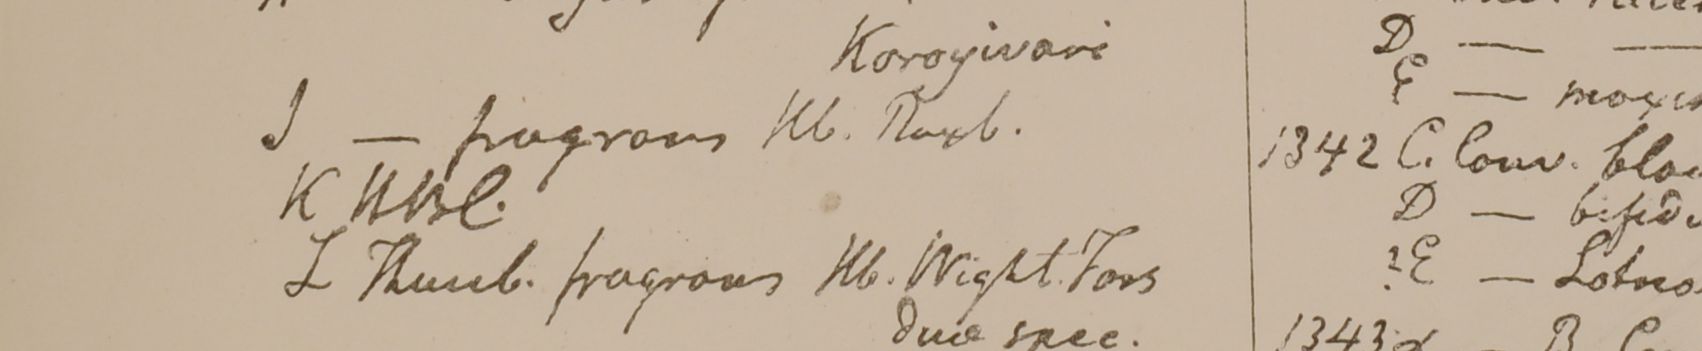 Korogivari
J — fragrans Hb. Roxb.
K HBC.
L Thunb. fragrans Hb. Wight. Fors
duo spec.
D — —
E —
1342 C. Conv.
D — bifidu
?E —
1343